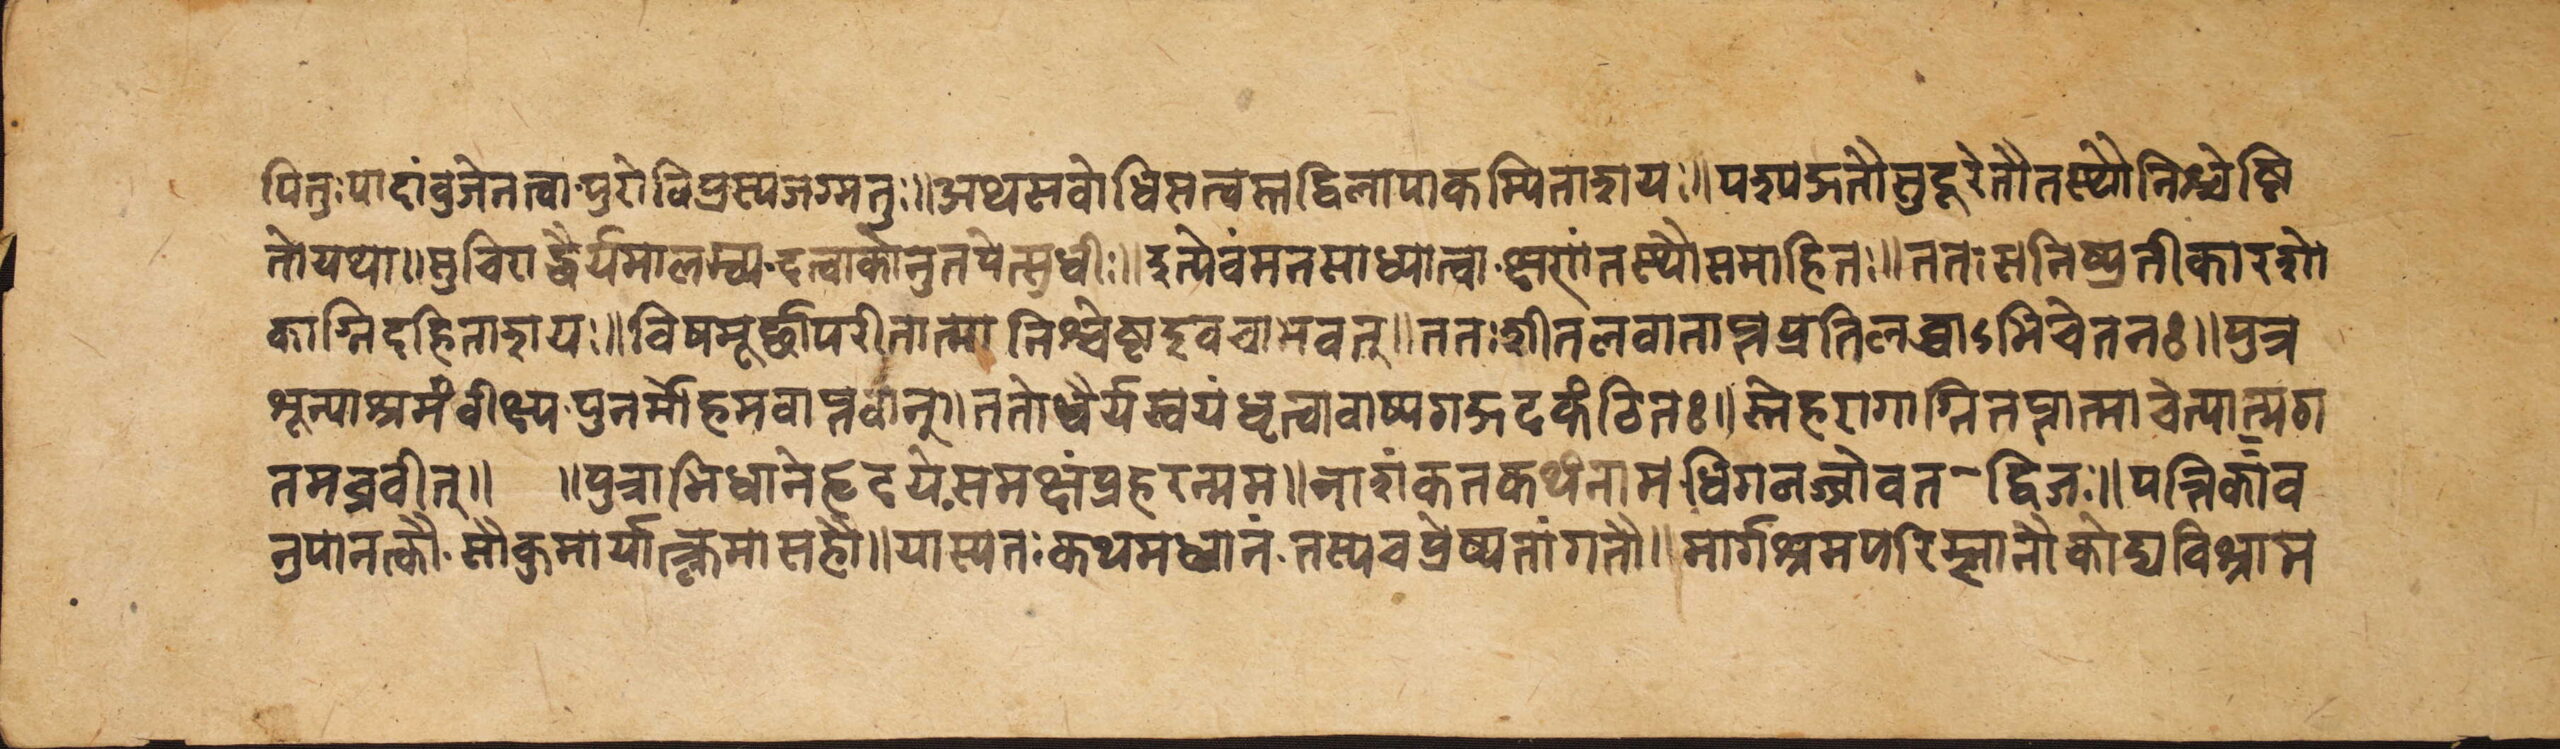 पितुःपादांवुजेनत्वा·पुरोविप्रस्यजग्मतुः॥अथसवोधिसत्वस्तद्विलापाकम्पिताशयः॥पश्यन्नतौसुदूरेतौतस्थौनिश्चेष्टि
तोयथा॥सुचिराद्धैर्यमालम्व्य·दत्वाकोनुतपेत्सुधीः॥इत्येवंमनसाध्यात्वा·क्षणंतस्थौसमाहितः॥ततःसनिष्प्रतीकारशो
काग्निदहिताशयः॥विषमूर्छापरीतात्मानिश्चेष्टइवचाभवत्॥ततःशीतलवाताप्तप्रतिलब्धाऽभिचेतनः॥पुत्र
शून्याश्रमंवीक्ष्य·पुनर्मोहमवाप्तवान्॥ततोधैर्यस्वयंधृत्वावाष्पगद्गदकंठितः॥स्नेहरागाग्नितप्तात्माचेत्यात्मग
तमव्रवीत्॥ ॥पुत्राभिधानेहृदये·समक्षंप्रहरन्मम॥नाशंकतकथंनामधिगलज्जोवतद्विजः॥पत्तिकाव
नुपानत्कौ·सौकुमार्यात्क्लमासहौ॥यास्यतःकथमध्वानं·तस्यचप्रेष्यतांगतौ॥मार्गश्रमपरिम्लानौकोद्यविश्राम